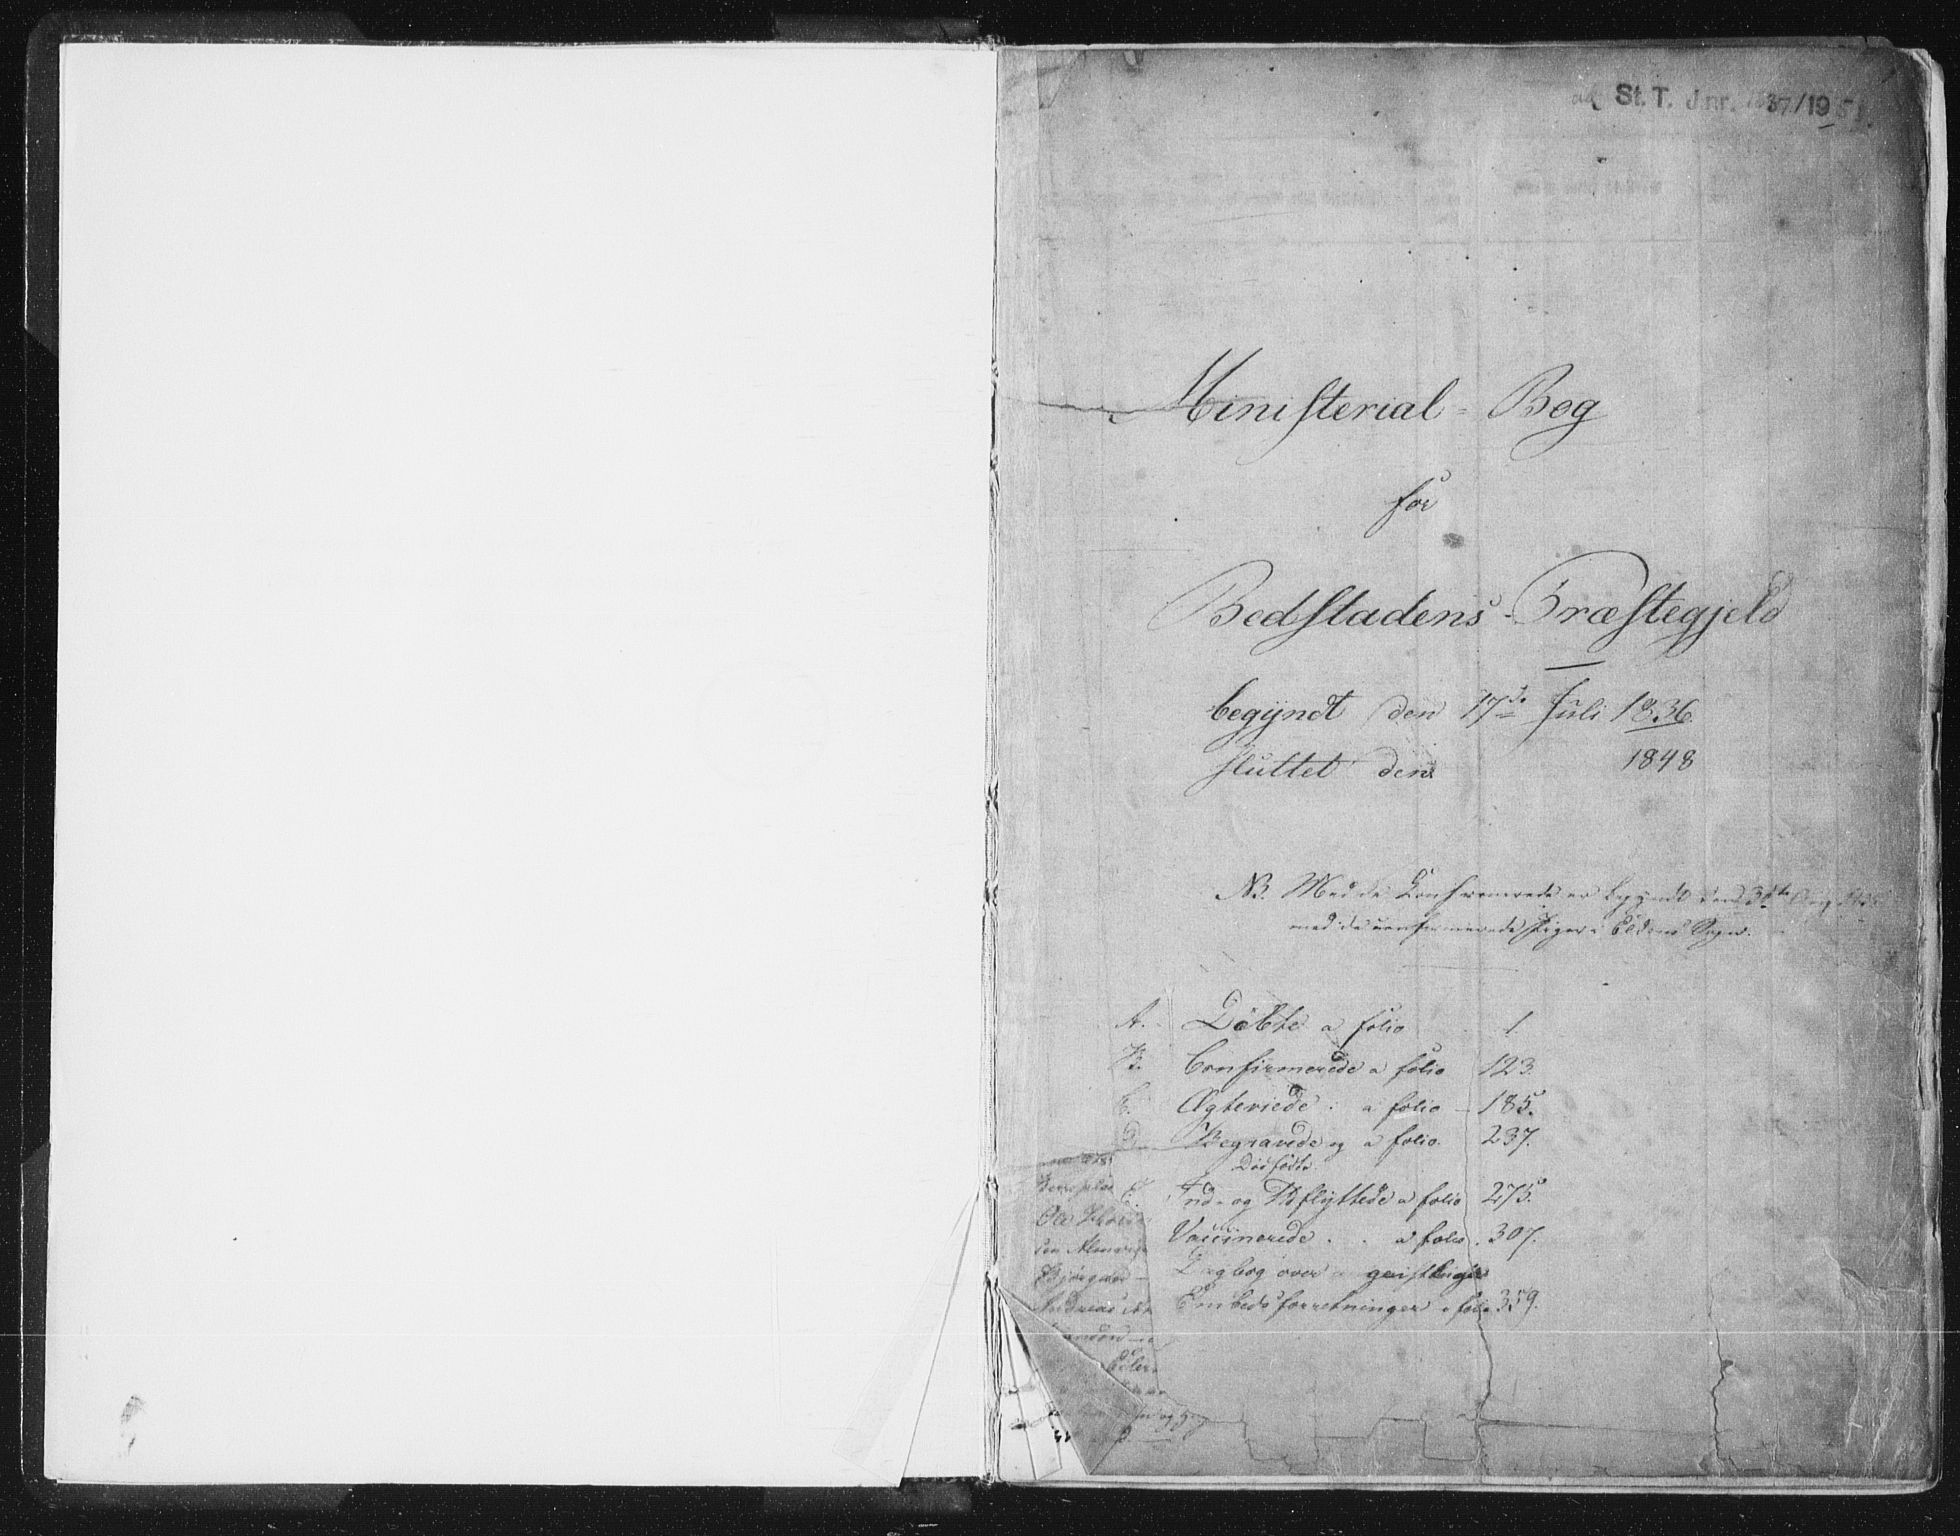 St. T. J.nr. 37/1951.
Ministerial = Bog
for
Bedstadens Præstegjeld
begyndt den 17de Juli 1836.
sluttet den 1848
NB. Med de Confirmerede er begyndt den
med de confirmerede Piger i Eldens Sogn.
A. Döbte a folio 1.
B. Confirmerede a folio 123.
C. Ægteviede a folio 185.
D. Begravede og a folio 237.
Dödfödte
E. Ind- og Udflyttede a folio 275.
Vaccinerede a folio 307.
Dagbog over geistlige
Embedsforretninger a folio 359.